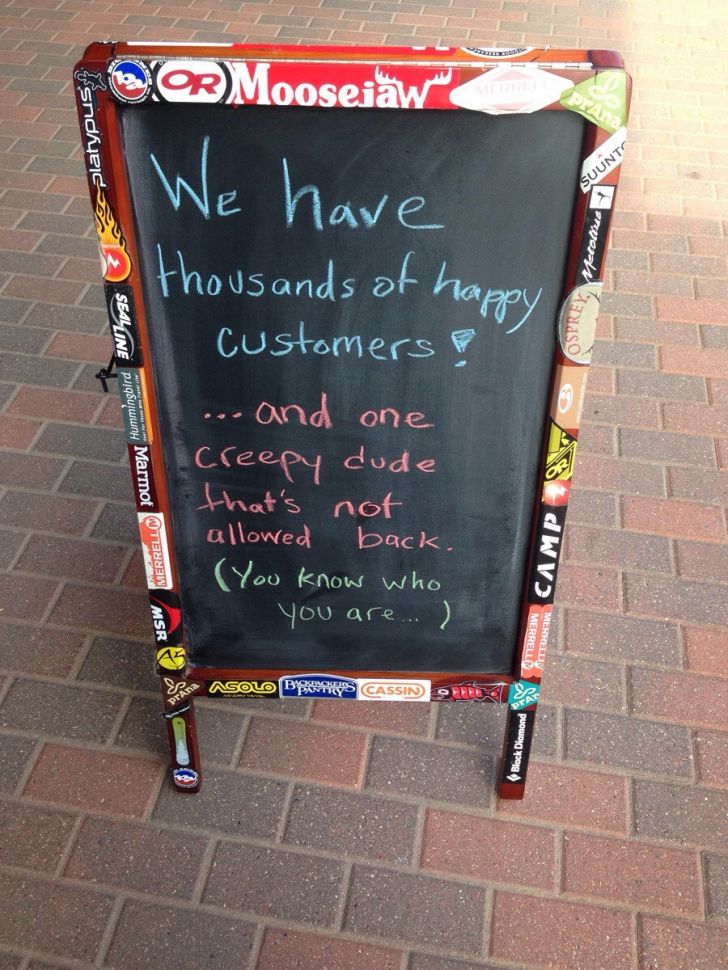 OR
Moosejaw
MERRELL
prAna
platypus
SUUNTO
Metolius
SEALLINE
OSPREY
Hummingbird
We have
thousands of happy
customers!
... and one
creepy dude
that's not
allowed back.
(You know who
you are... )
Marmot
OR
MERRELL
CAMP
MSR
MERRELL
MERRELL
prAna
ASOLO
BACKPACKER'S
PANTRY
CASSIN
prAna
Black Diamond